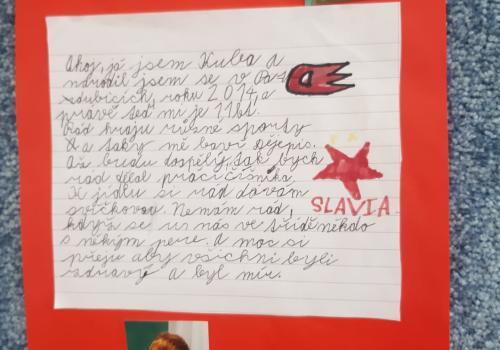 Ahoj, já jsem Kuba a
narodil jsem se v Par-
dubicích, roku 2014, a
právě teď mi je 11 let.
Rád hraju různé sporty
a taky mě baví dějepis.
Až budu dospělý, tak bych
rád dělal práci číšníka.
K jídlu si rád dávám
svíčkovou. Nemám rád,
když se u nás ve třídě někdo
s někým pere. a moc si
přeju aby všichni byli
zdravý a byl mír.
SLAVIA